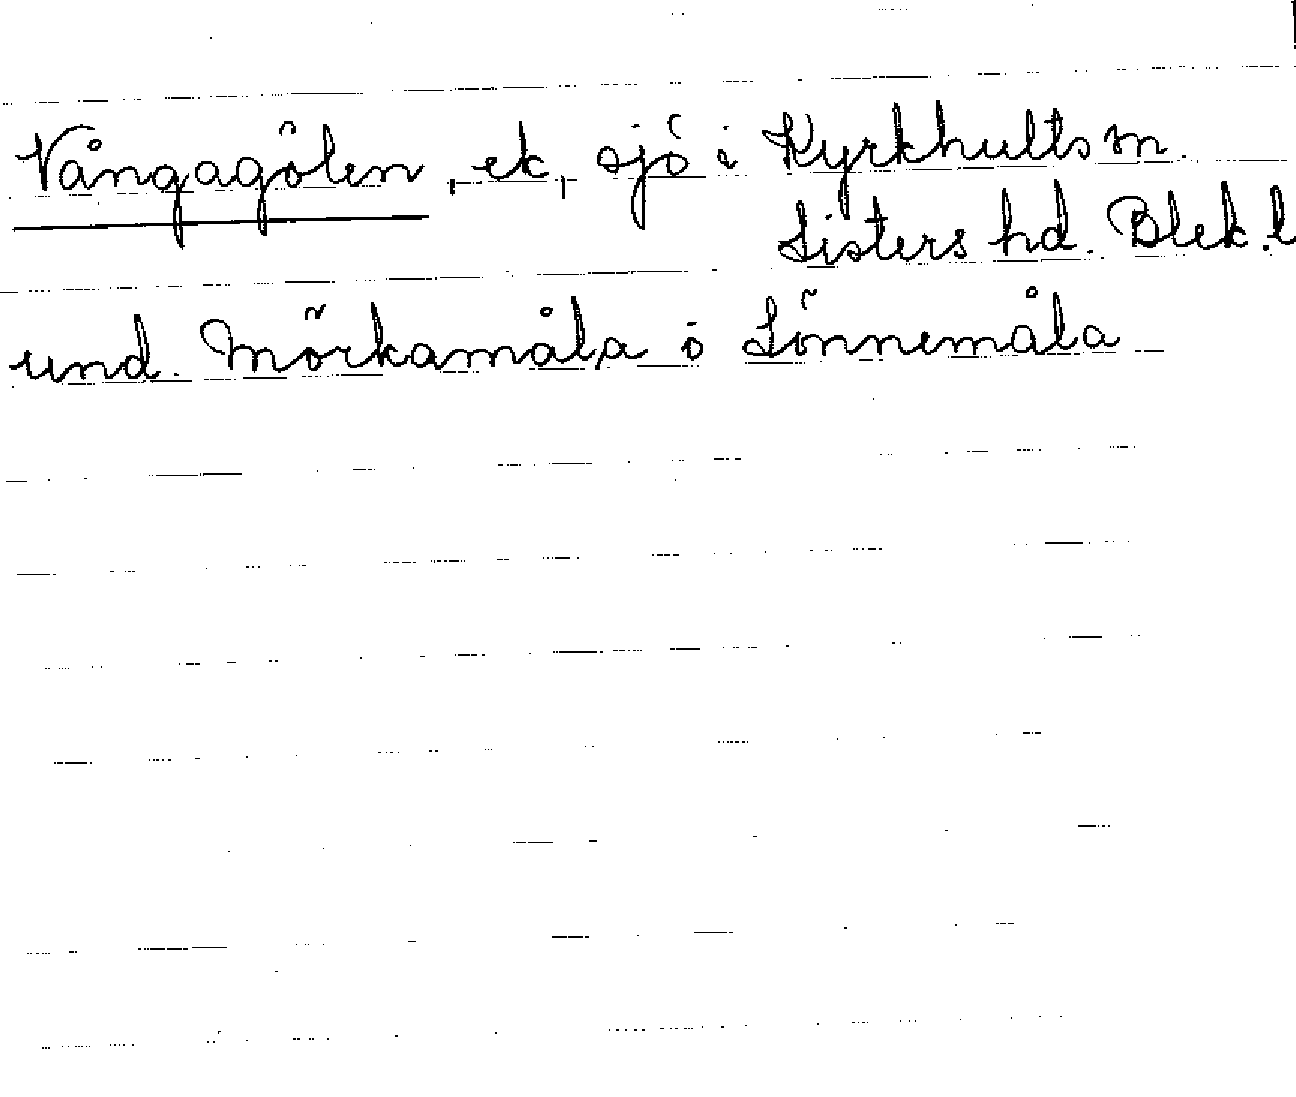 Vångagölen, ek, sjö i Kyrkhults sn.
Listers hd. Blek. l
und. Mörkamåla o Lönnemåla